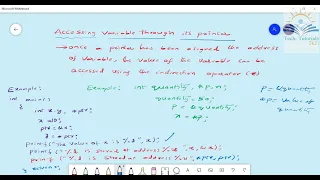 Microsoft Whiteboard
Tamil Tutorials
Accessing Variable through its pointer
→ once a pointer has been assigned the address
of variable, the value of the variable can be
accessed using the indirection operator (*)
Example:
int main()
{ int x, y, *ptr;
x = 10;
ptr = &x;
y = *ptr;
printf("The value of x is %d", x);
printf("%d is stored at address %u", x, &x);
printf("%d is stored at address %u", *ptr, ptr);
Example: int quantity, *p, n;
quantity = 50;
p = &quantity
n = *p;
p = &quantity
*p → value of
quantity